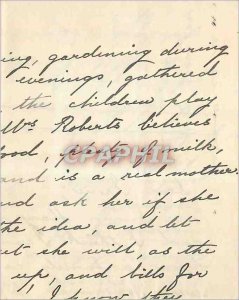 ing, gardening during
evenings, gathered
the children play
Mrs Roberts believes
food, plenty of milk,
and is a real mother.
and ask her if she
the idea, and let
ut she will, as the
up, and bills for
I know they
CPAPHIL